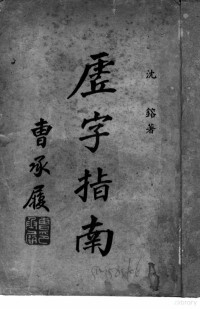 沈鎔著
虚字指南
曹承履